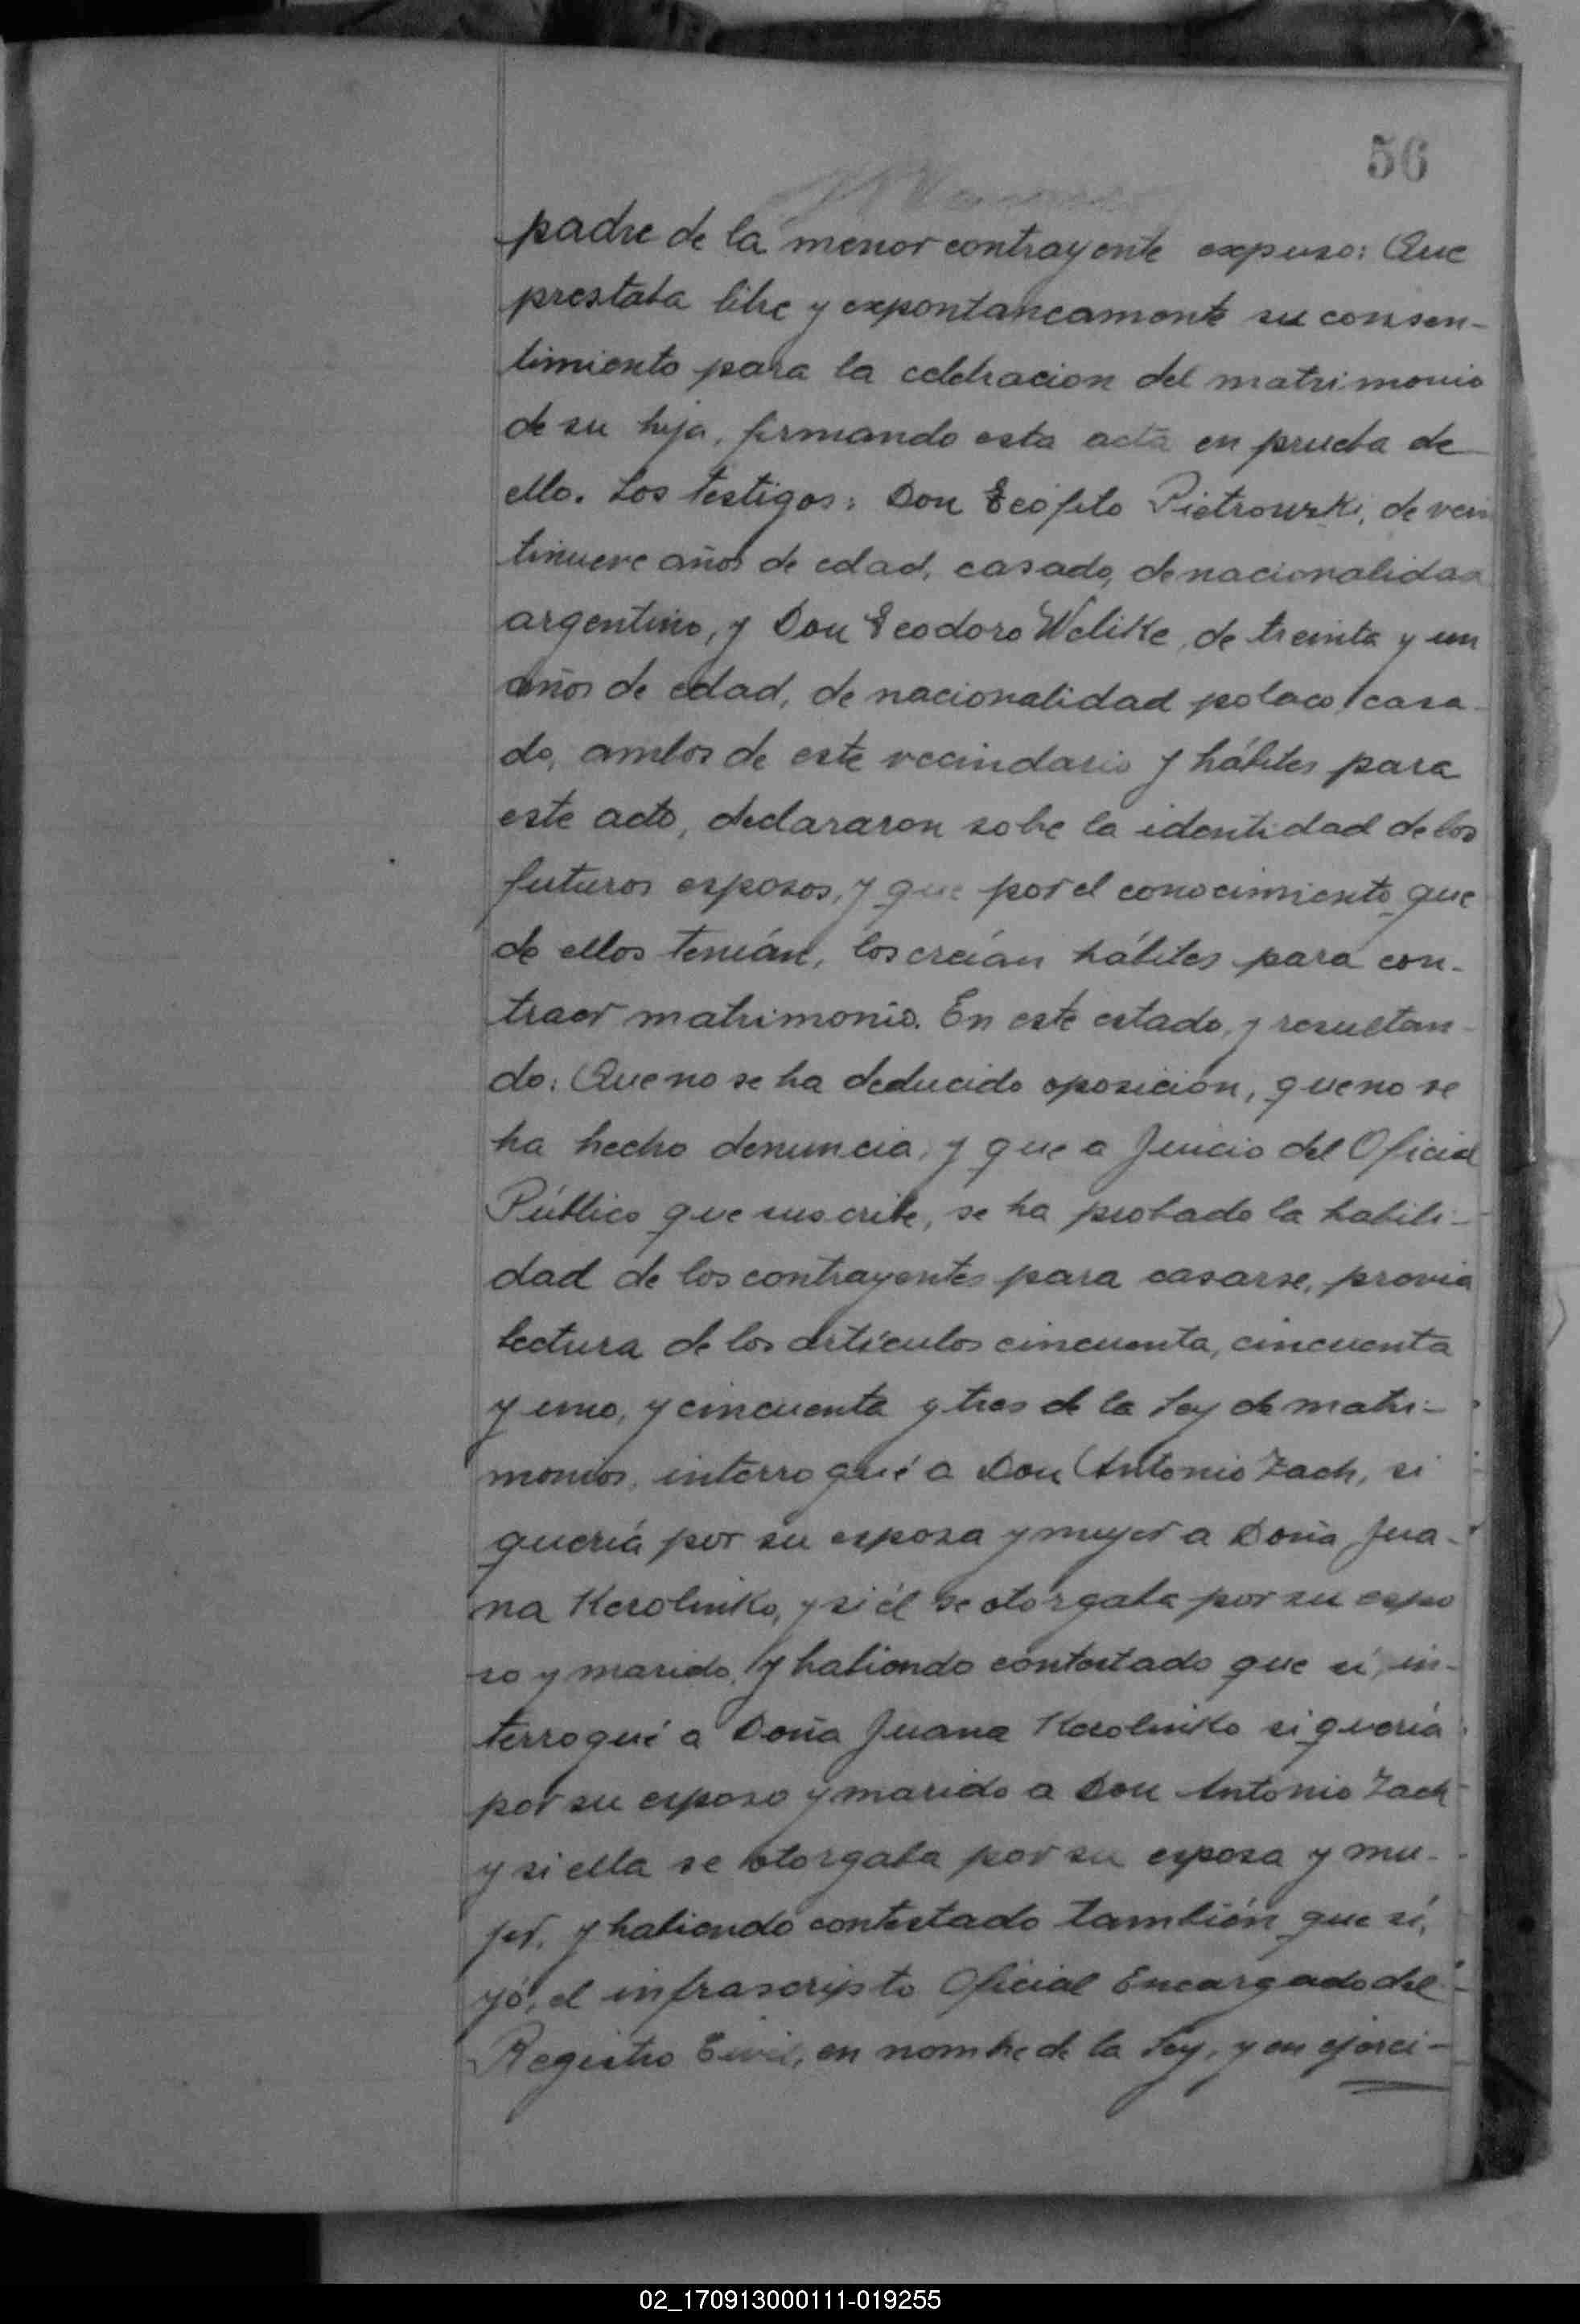 56
padre de la menor contrayente expuso: Que
prestaba libre y expontaneamente su consen-
timiento para la celebracion del matrimonio
de su hija, firmando esta acta en prueba de
ello. Los testigos: Don Teófilo Pietrowski, de vein
tinueve años de edad, casado, de nacionalidad
argentino, y Don Teodoro Welike, de treinta y un
años de edad, de nacionalidad polaco, casa-
do, ambos de este vecindario y hábiles para
este acto, declararon sobe la identidad de los
futuros esposos, y que por el conocimiento que
de ellos tenían, los creían hábiles para con-
traer matrimonio. En este estado, y resultan-
do: Que no se ha deducido oposición, que no se
ha hecho denuncia, y que a juicio del Oficial
Público que suscribe, se ha probado la habili-
dad de los contrayentes para casarse, previa
lectura de los artículos cincuenta, cincuenta
y uno, y cincuenta y tres de la Ley de matri-
monios, interrogué a Don Antonio Zach, si
quería por su esposa y mujer a Doña Jua-
na Kerolinko, y si él se otorgaba por su espo
so y marido, y habiendo contestado que sí, in-
terrogué a Doña Juana Kerolinko si quería
por su esposo y marido a Don Antonio Zach
y si ella se otorgaba por su esposa y mu-
jer, y habiendo contestado también que sí,
yó, el infrascripto Oficial Encargado del
Registro Civil, en nombre de la Ley, y en ejerci-
02_170913000111-019255